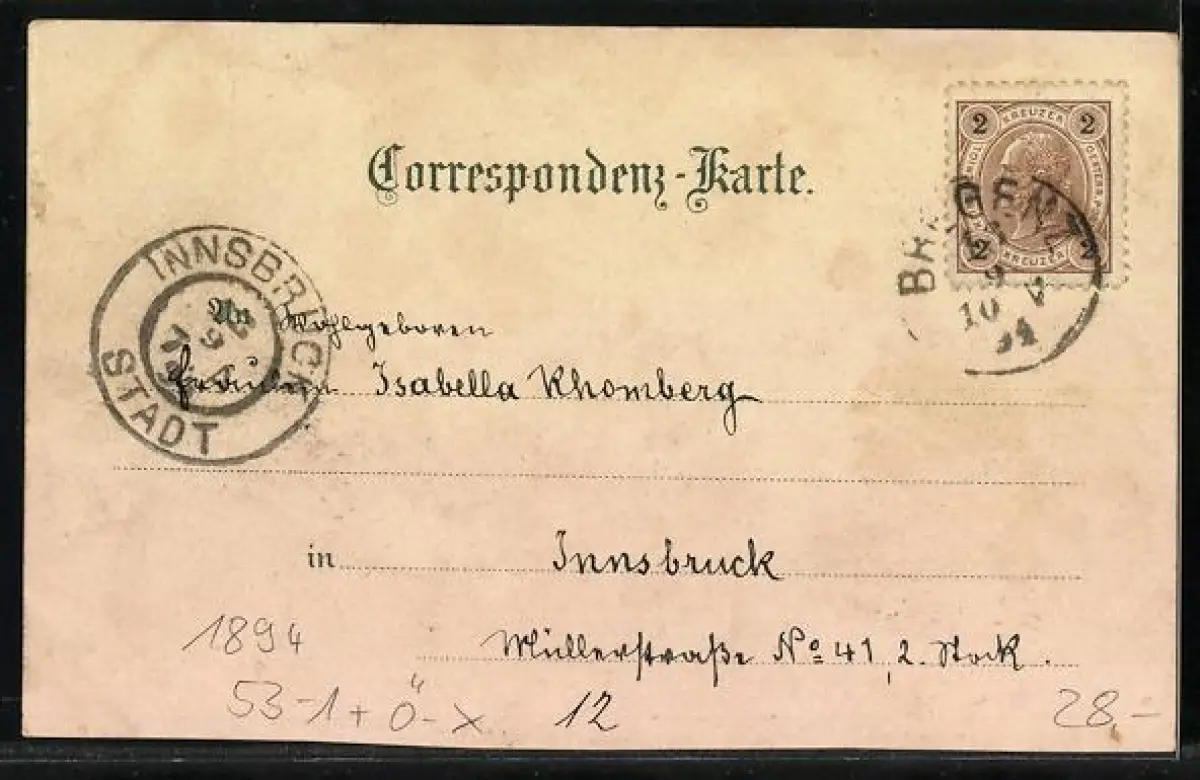 Correspondenz-Karte.
2 KREUZER 2
2 KREUZER 2
BREGENZ
9
10 V
94
INNSBRUCK
9
STADT
An Wohlgeboren
Fräulein Isabella Rhomberg
in Innsbruck
Müllerstraße No 41, 2. Stock.
1894
53-1+Ö-X 12
28,-